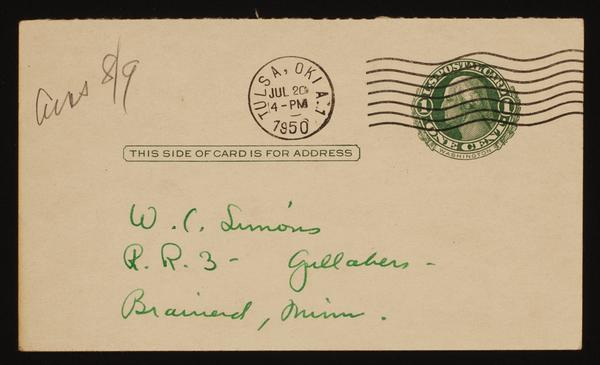 Ans 8/9
TULSA, OKLA.
JUL 20
4-PM
1950
U.S. POSTAL CARD
1 1
ONE CENT
WASHINGTON
THIS SIDE OF CARD IS FOR ADDRESS
W. C. Simons
R. R. 3 - Gullabers -
Brainerd, Minn.